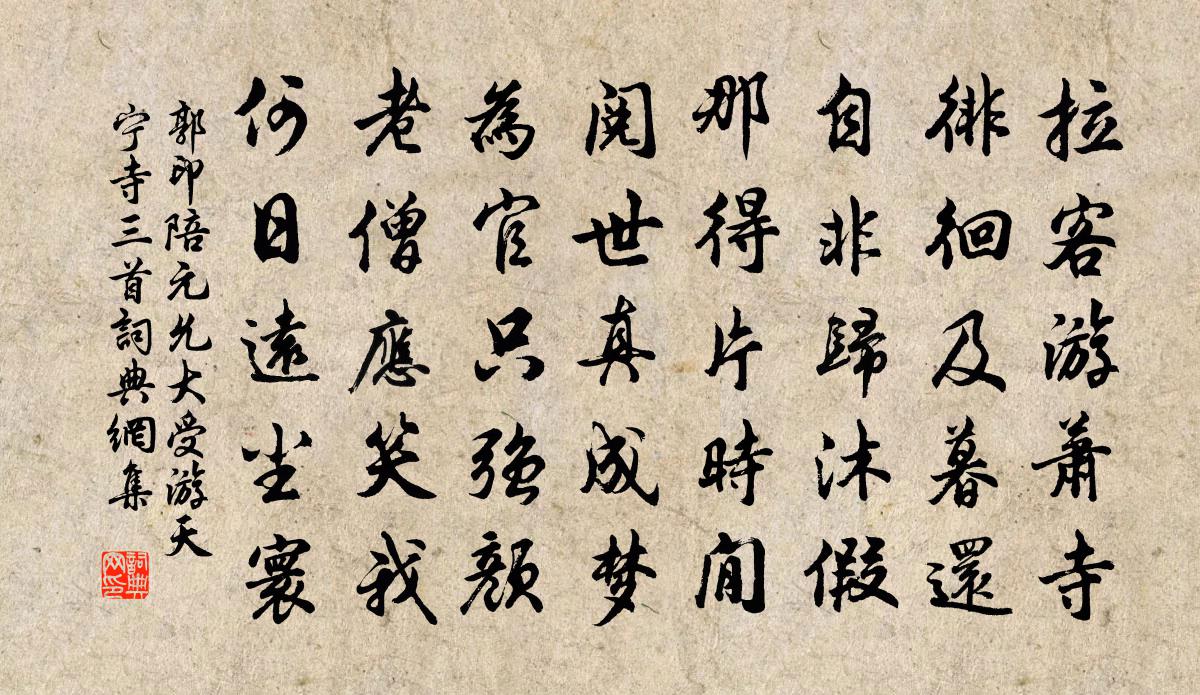 拉客游蕭寺
徘徊及暮還
自非歸沐假
那得片時閒
閱世真成梦
為官只强顏
老僧應笑我
何日遠尘寰
郭印陪元允大受游天
宁寺三首詞典網集
詞典
网印